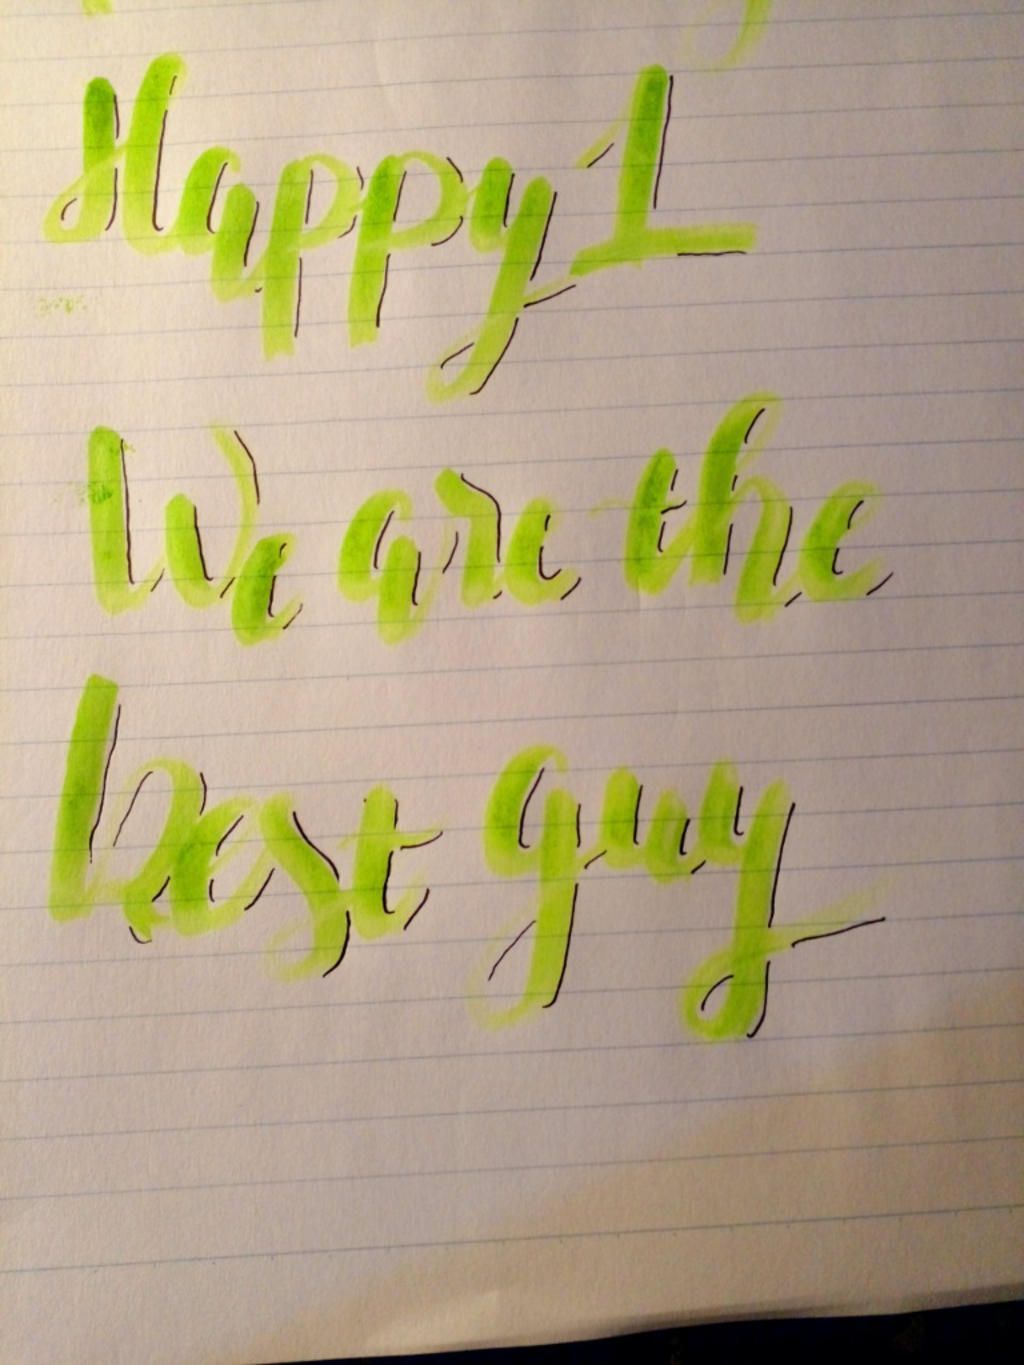 Happy 1
We are the
best guy